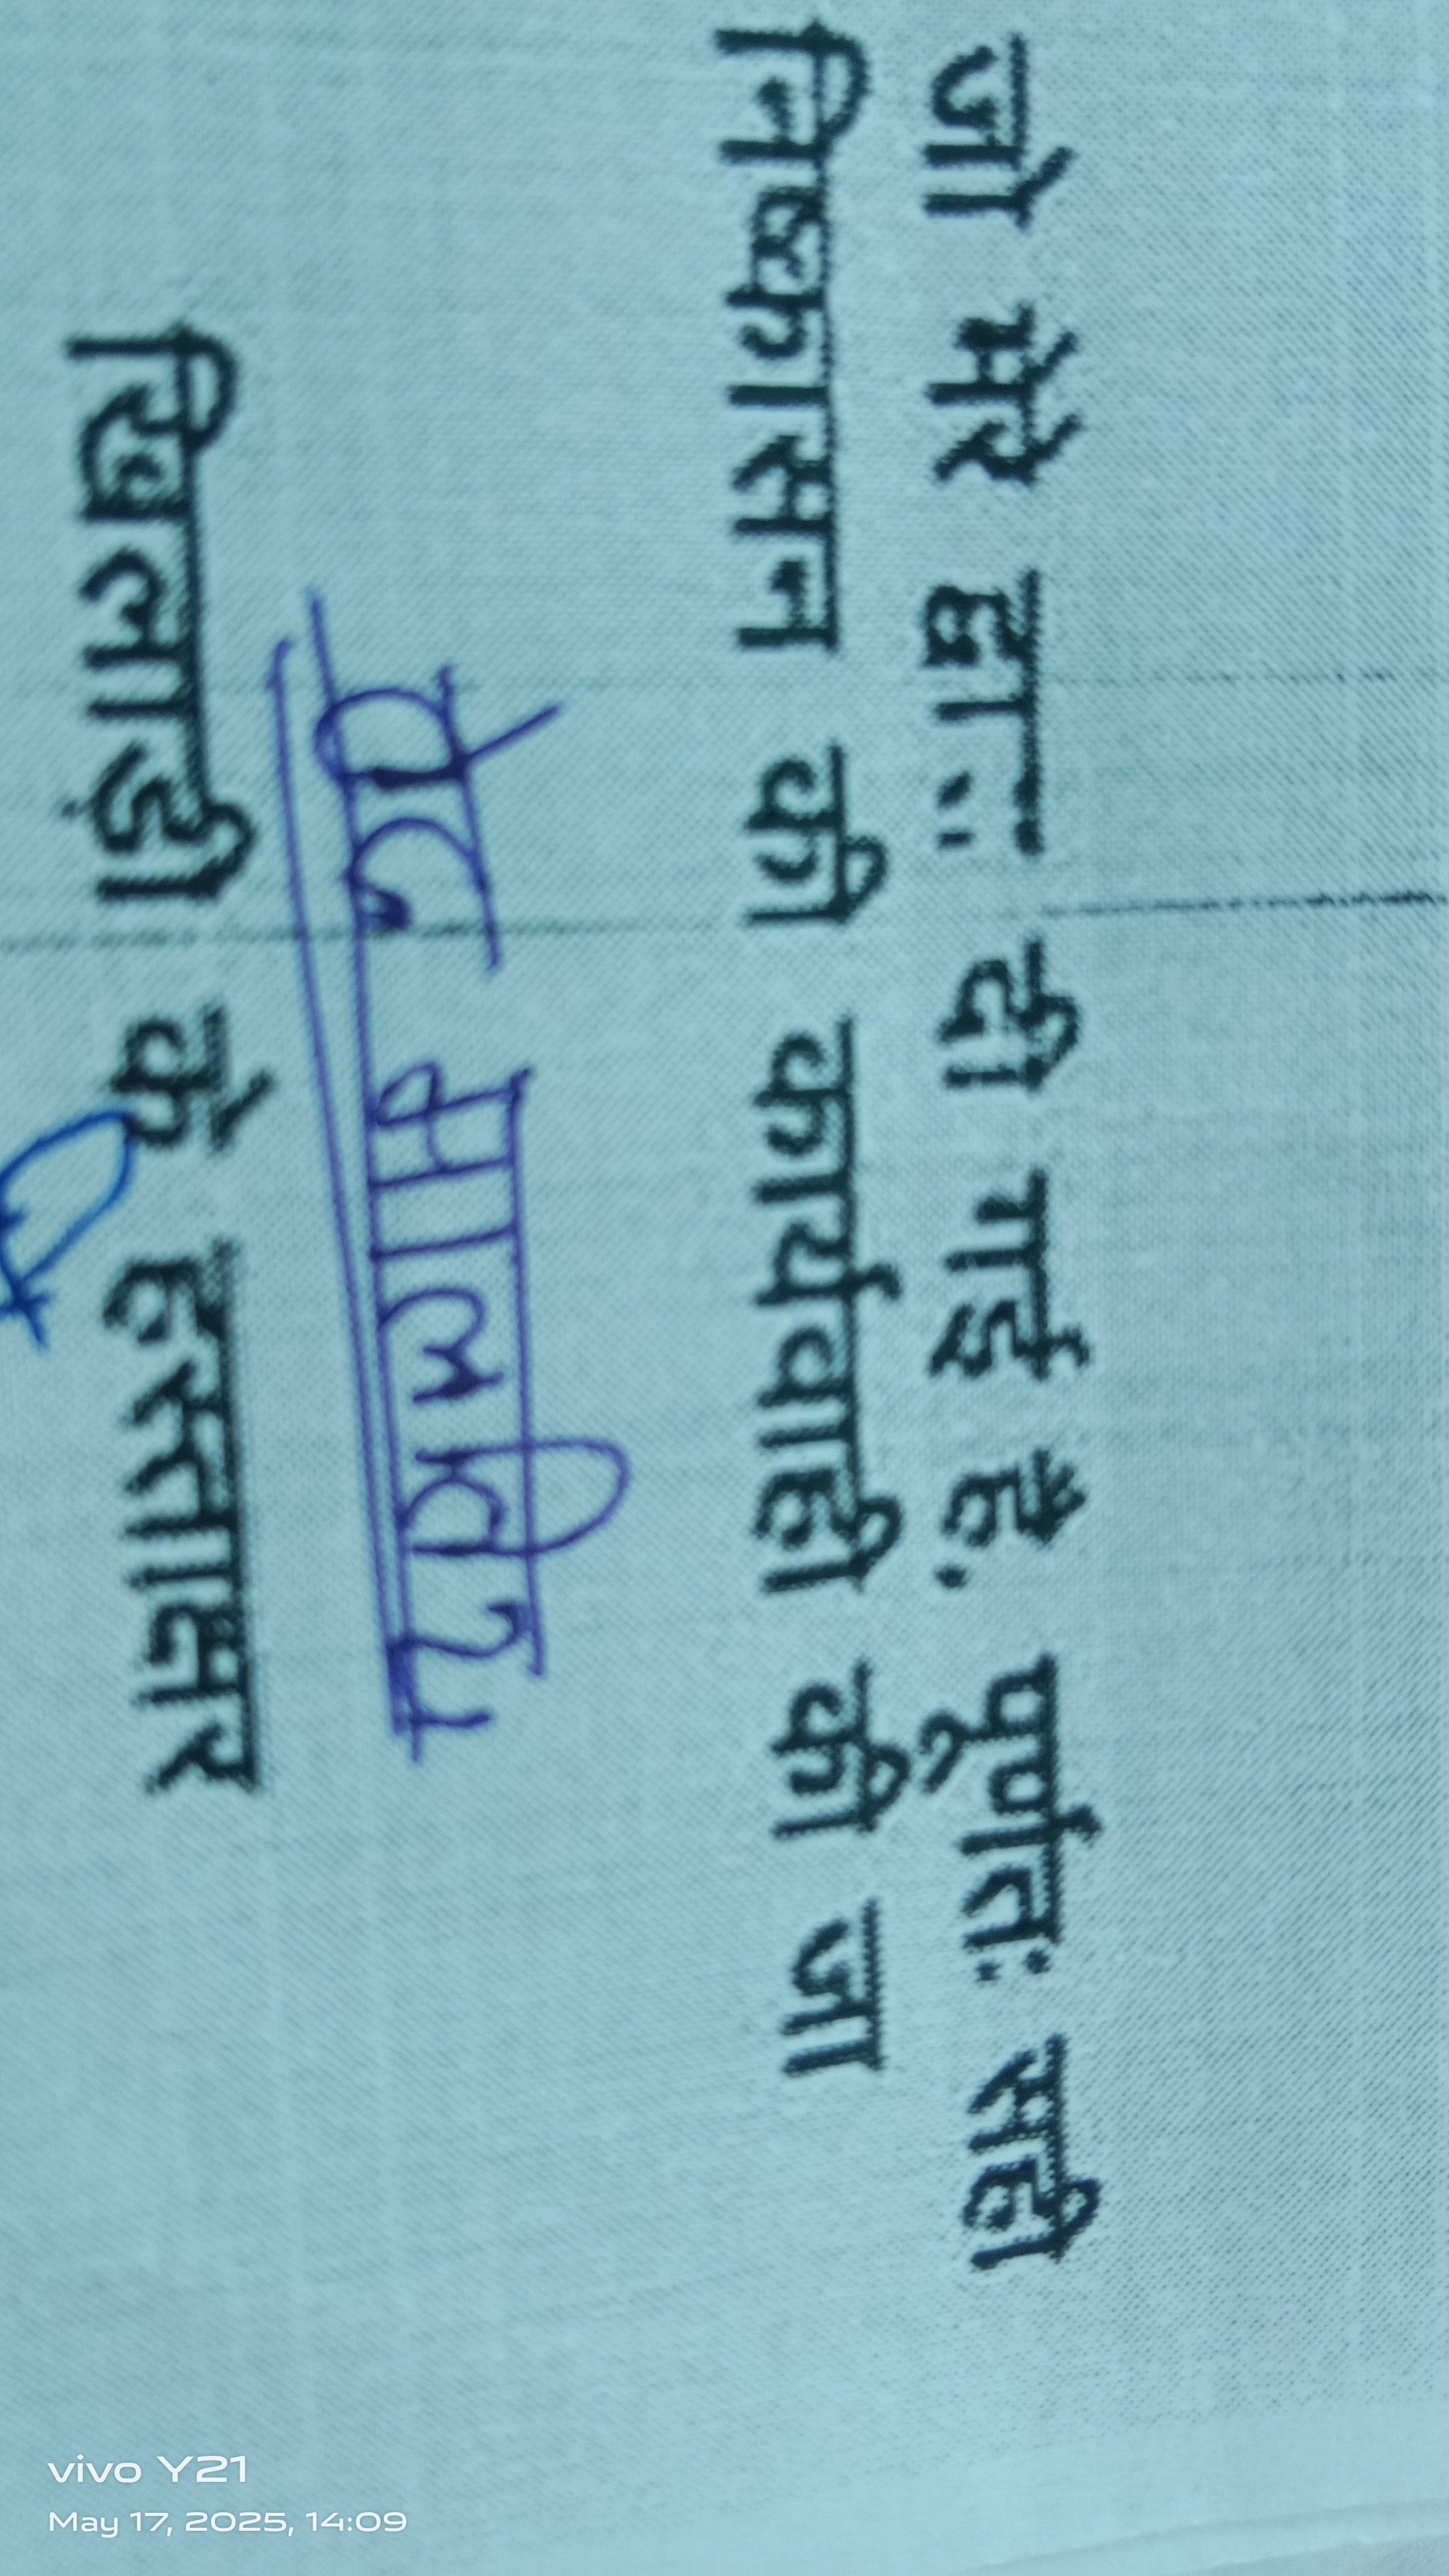 जो मेरे द्वारा दी गई है, पूर्णतः सही
निष्कासन की कार्यवाही की जा
वेद मालवीय
खिलाड़ी के हस्ताक्षर
vivo Y21
May 17, 2025, 14:09